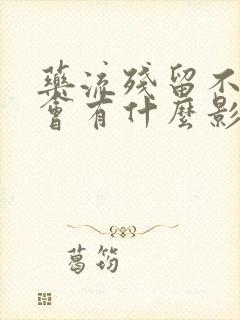 藥流殘留不
會有什麼影
葛筠